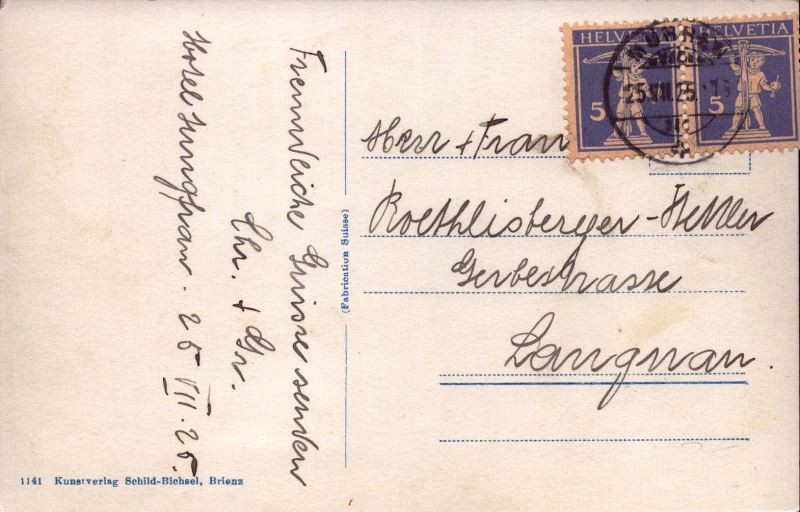 Hotel Jungfrau. 25 VII. 25.
Freundliche Grüsse senden
Chr. + Gr.
(Fabrication Suisse)
HELVETIA HELVETIA
5 5
MÜRREN
25.VII.25.
Herr + Frau
Roethlisberger-Hettler
Gerbestrasse
Langnau.
1141 Kunstverlag Schild-Bichsel, Brienz